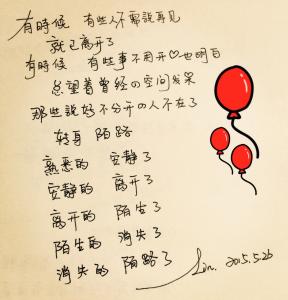 有時候 有些人不需說再見
就已离开了
有時候 有些事不用开♡也明白
总望着曾经の空间发呆
那些說好不分开の人不在了
转身 陌路
熟悉的 安静了
安静的 离开了
离开的 陌生了
陌生的 消失了
消失的 陌路了
Lin. 2015.5.26